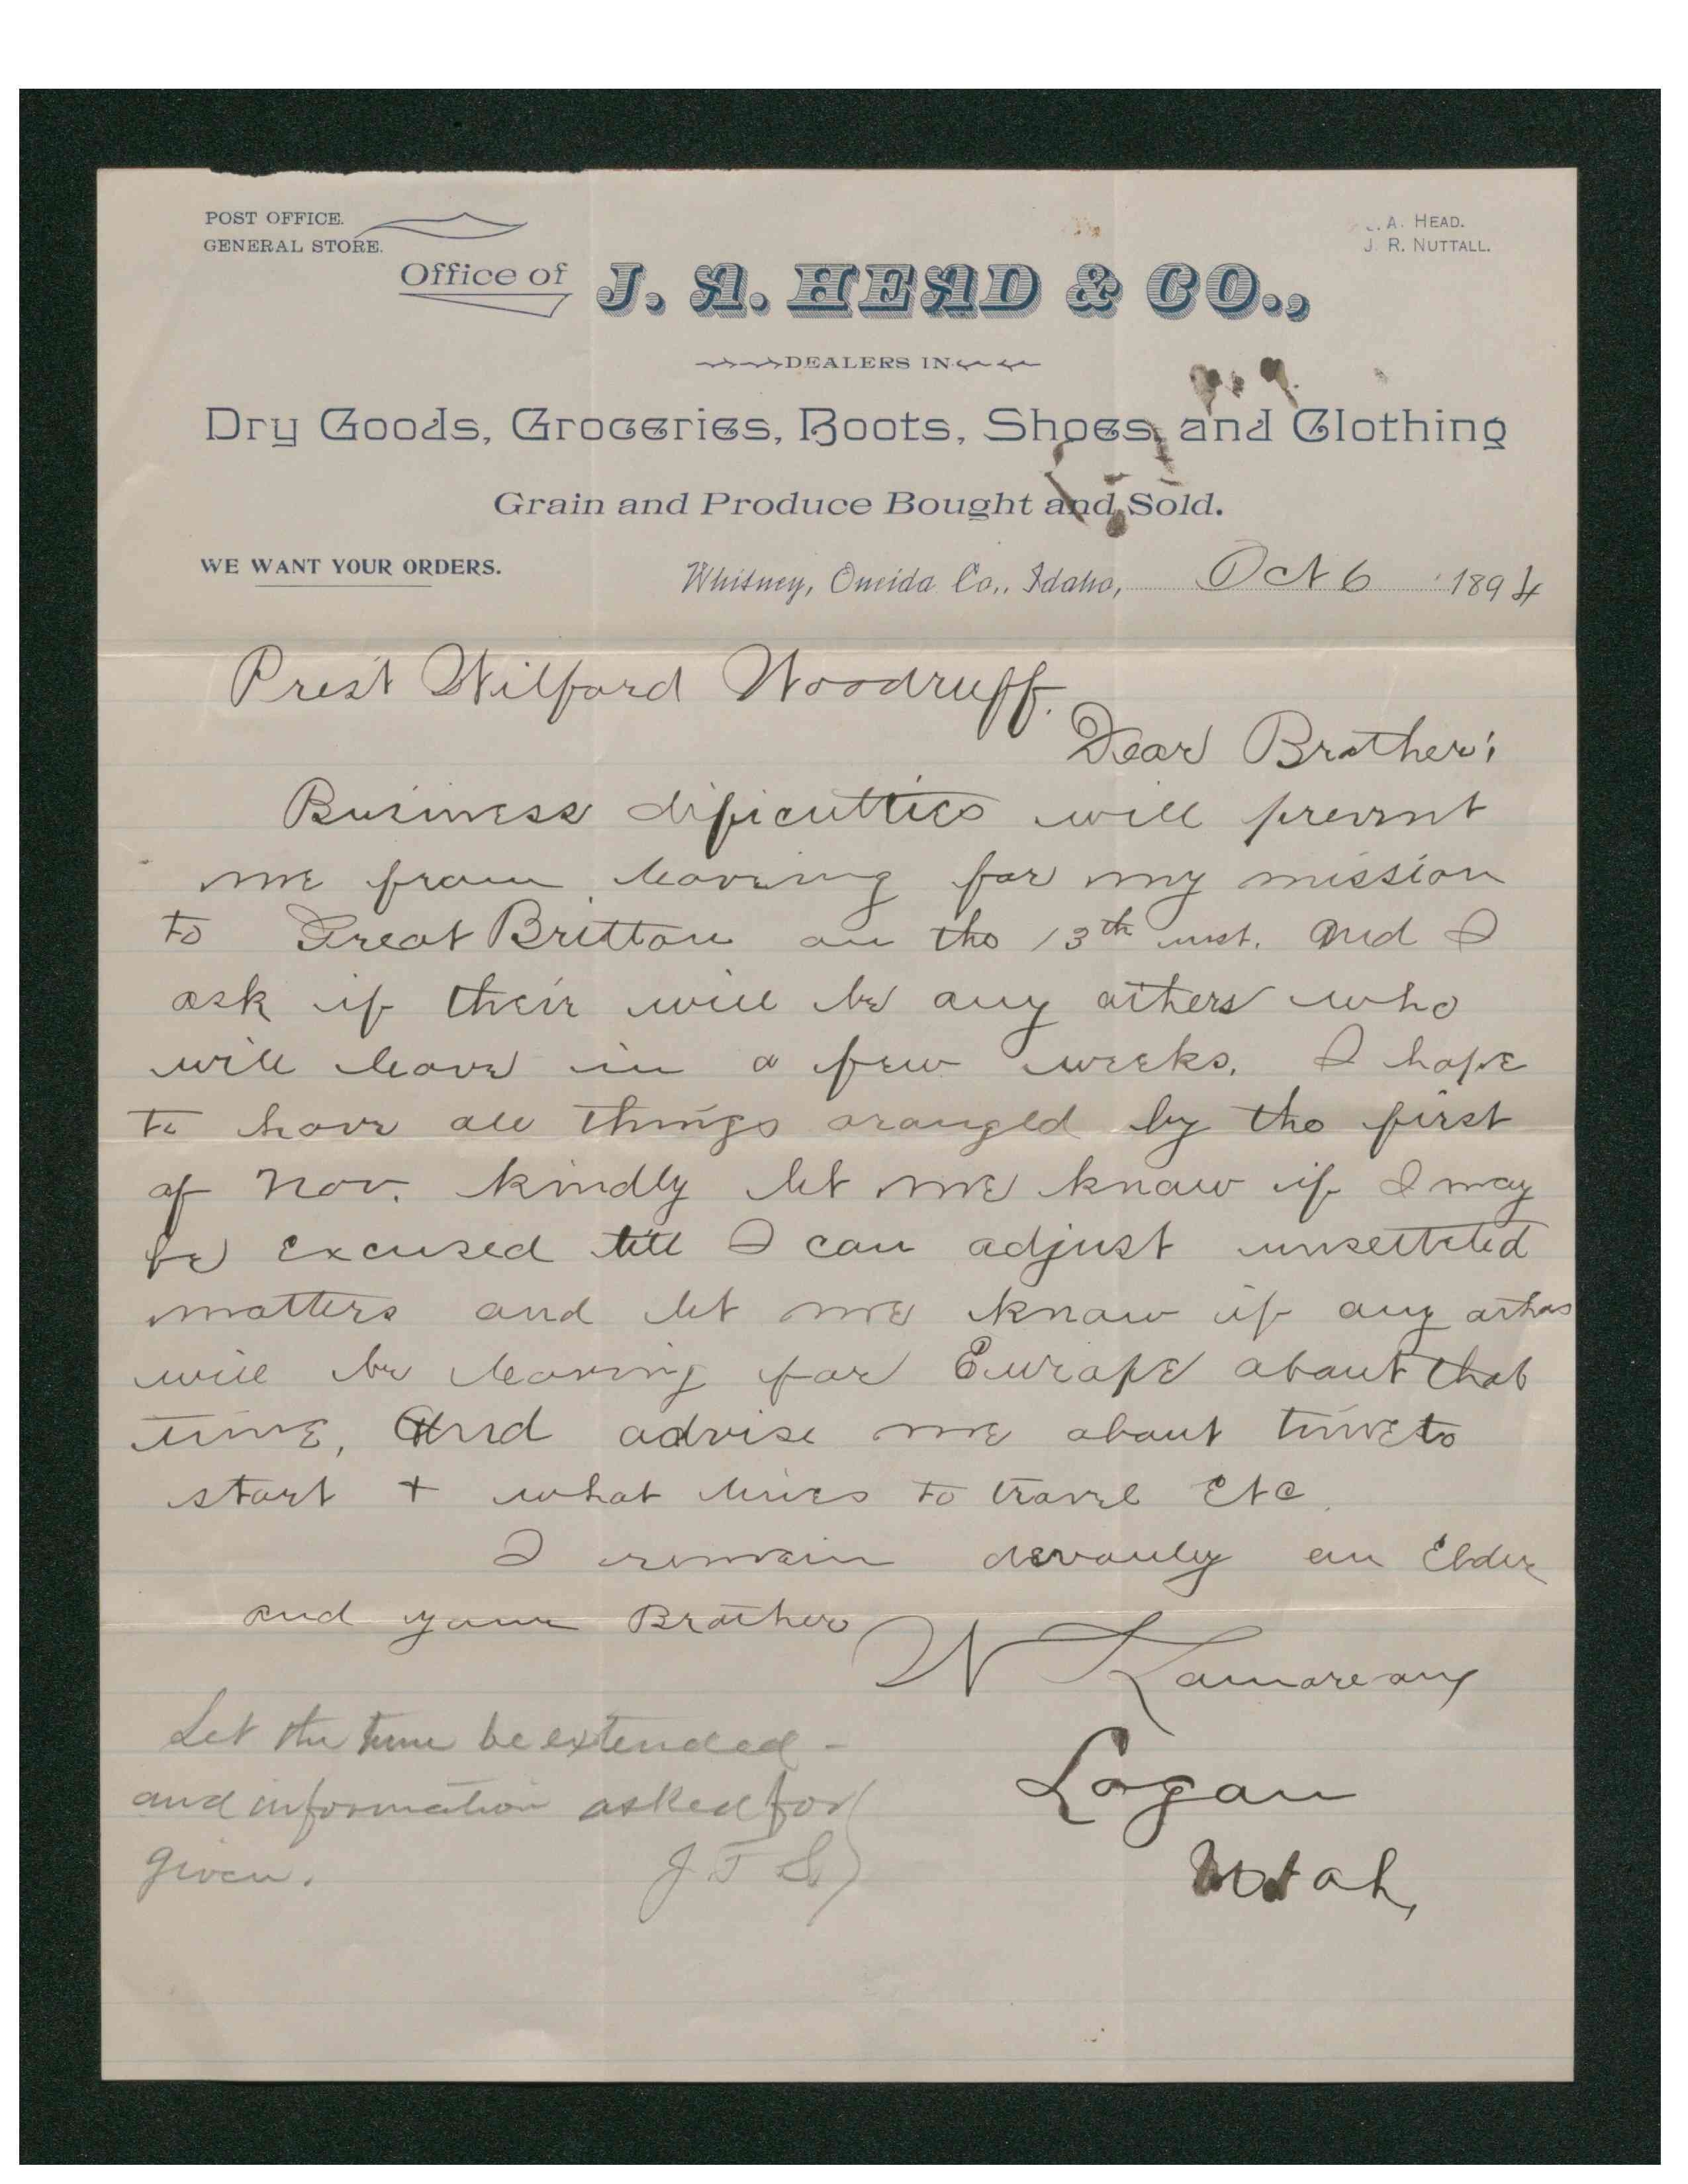 POST OFFICE.
GENERAL STORE.
. A. HEAD.
J. R. NUTTALL.
Office of J. A. HEAD & CO.,
DEALERS IN
Dry Goods, Groceries, Boots, Shoes, and Clothing
Grain and Produce Bought and Sold.
WE WANT YOUR ORDERS.
Whitney, Oneida Co., Idaho, Oct 6 1894
Pres't Wilford Woodruff.
Dear Brother;
Business dificultties will prevent
me from leaveing for my mission
to Great Britton on the 13th inst. And I
ask if their will be any others who
will leave in a few weeks. I hope
to have all things aranged by the first
of Nov. kindly let me know if I may
be excused till I can adjust unsetteled
matters and let me know if any others
will be leaving for Europe about that
time, And advise me about time to
start + what lines to travel Etc.
I remain devouly an Elder
and your Brother
W
Logan
Utah,
Let the time be extended -
and information asked for
given. J F S